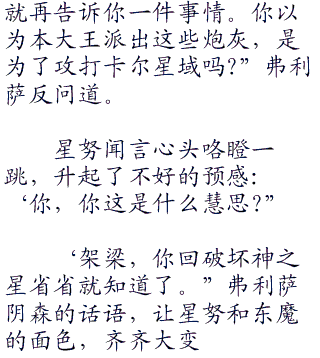 就再告诉你一件事情。你以
为本大王派出这些炮灰，是
为了攻打卡尔星域吗?”弗利
萨反问道。
星努闻言心头咯瞪一
跳，升起了不好的预感：
‘你，你这是什么慧思?”
‘架梁，你回破坏神之
星省省就知道了。”弗利萨
阴森的话语，让星努和东魔
的面色，齐齐大变